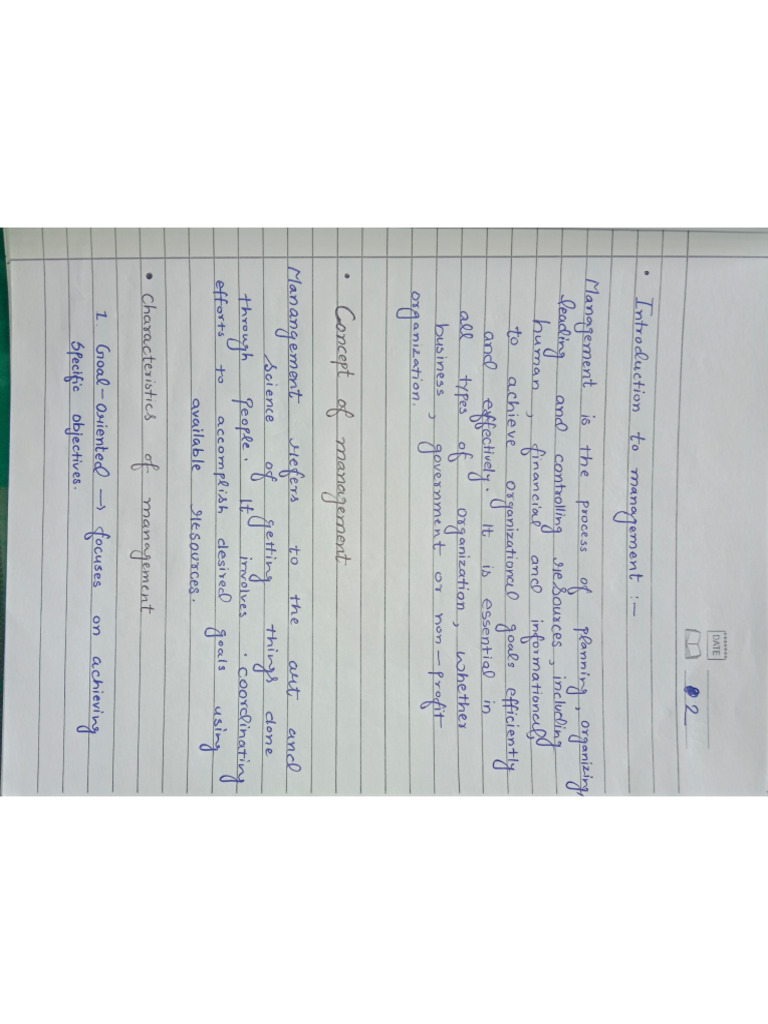 DATE
2
• Introduction to management :-
Management is the process of planning, organizing,
leading and controlling resources, including
human, financial and informational,
to achieve organizational goals efficiently
and effectively. It is essential in
all types of organization, whether
business, government or non-profit
organization.
• Concept of management
Manangement refers to the art and
science of getting things done
through people. It involves . coordinating
efforts to accomplish desired goals using
available resources.
• characteristics of management
1. Goal-oriented → focuses on achieving
specific objectives.